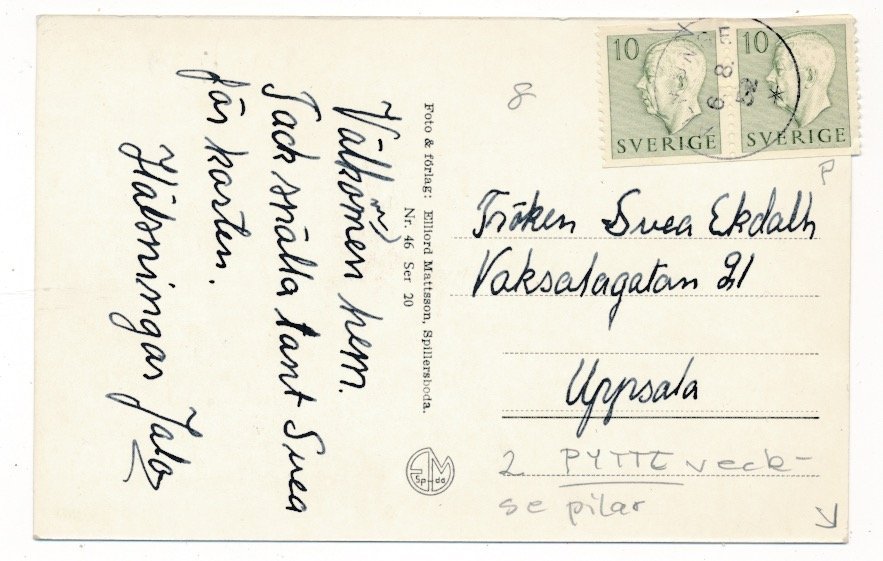 Välkomen hem.
(m)
Tack snälla tant Svea
för korten.
Hälsningar
Foto & förlag: Elliord Mattsson, Spillersboda.
Nr. 46 Ser 20
8
10 10
SVERIGE SVERIGE
6. 8. 52
P
Fröken Svea Ekdalh
Vaksalagatan 21
Uppsala
2 PYTTE veck-
se pilar